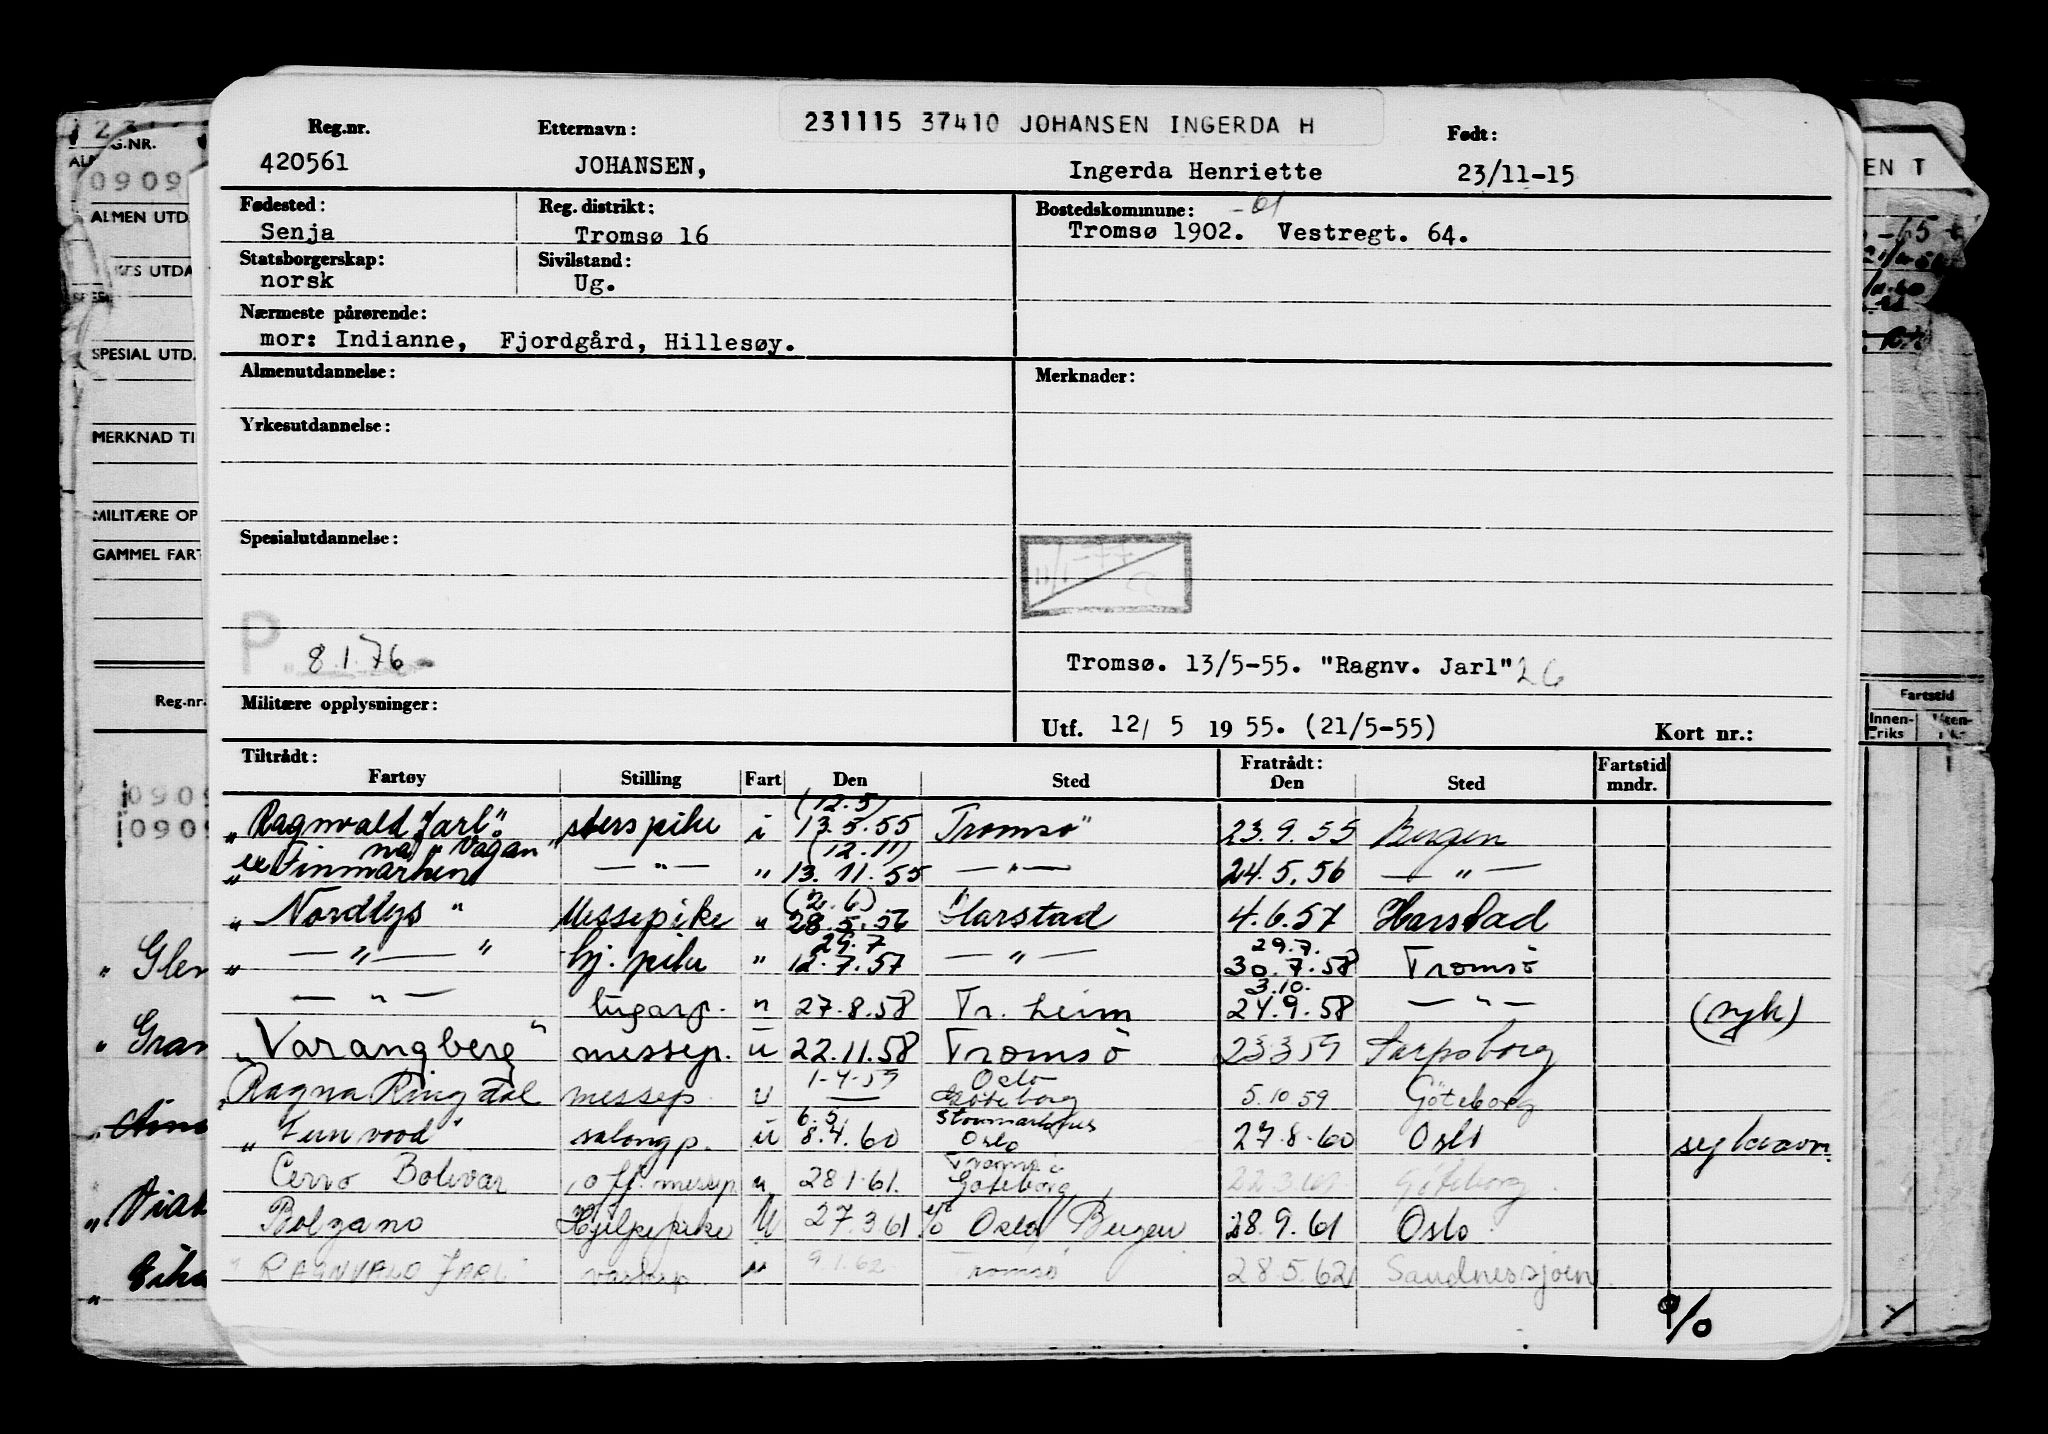 231115 37410 JOHANSEN INGERDA H
Reg.nr. Etternavn: Født:
420561 JOHANSEN, Ingerda Henriette 23/11-15
Fødested: Reg. distrikt: Bostedskommune: -61
Senja Tromsø 16 Tromsø 1902. Vestregt. 64.
Statsborgerskap: Sivilstand:
norsk Ug.
Nærmeste pårørende:
mor: Indianne, Fjordgård, Hillesøy.
Almenutdannelse: Merknader:
Yrkesutdannelse:
Spesialutdannelse:
11/1-77
P. 8.1.76
Tromsø. 13/5-55. "Ragnv. Jarl" 26
Militære opplysninger:
Utf. 12/ 5 19 55. (21/5-55) Kort nr.:
Tiltrådt: Fratrådt: Fartstid
Fartøy Stilling Fart Den Sted Den Sted mndr.
(12.5)
"Ragnvald Jarl" i 13.5.55 Tromsø" 23.9.55 Bergen
na "Vågan" (12.11)
ex Finmarken — " — " 13.11.55 — " — 24.5.56 — " —
(2.6)
"Nordlys" Messepike " 28.5.56 Harstad 4.6.57 Harstad
29.7 29.7.
" — " — " hj. pike " 12.7.57 — " — 30.7.58 Tromsö
3.10.
— " — lugarp. " 27.8.58 Tr. heim 24.9.58 — " — (syk)
"Varangberg" messep. u 22.11.58 Tromsö 23.3.59 Sarpsborg
1-4-59 Oslo
Ragna Ringdal messep. u — Göteborg 5.10.59 Göteborg
6.5
salongp. u 8.4.60 Oslo 27.8.60 Oslo
Tromsö
Cervo Bolivar off. messep. u 28.1.61. Göteborg 22.3.61. Göteborg
Bolzano Hjelpepike U 27.3.61 Oslo Bergen 28.9.61 Oslo
"RAGNVALD JARL" " 9.1.62 Tromsø 28.5.62 Sandnessjøen
%
G.NR.
0909
ALMEN UTD.
ES UTDA
SPESIAL UTD.
MERKNAD TI
MILITÆRE OP
GAMMEL FART
Reg.nr.
0909
0909
"Gler
"Gran
EN T
-65
Fartstid
Innen-
riks